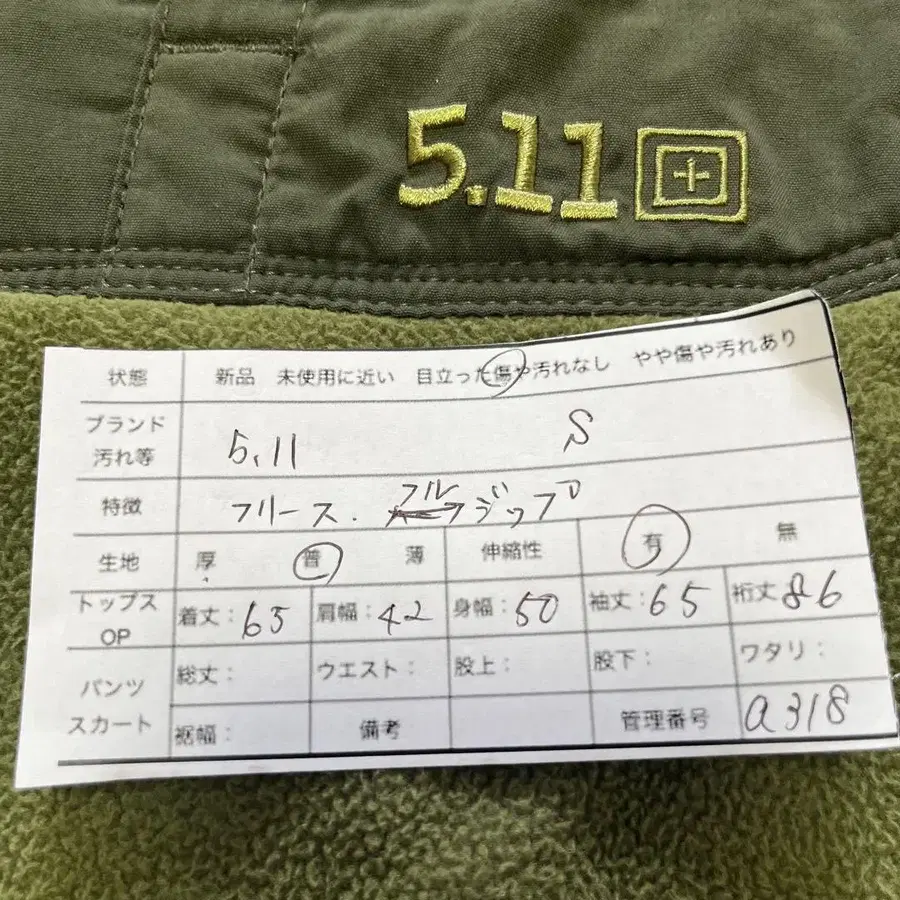 5.11
状態 新品 未使用に近い 目立った傷や汚れなし やや傷や汚れあり
ブランド 5.11 S
汚れ等
特徴 フリース. フルジップ
生地 厚 普 薄 伸縮性 有 無
トップス OP 着丈：65 肩幅：42 身幅：50 袖丈：65 裄丈86
パンツ スカート 総丈： ウエスト： 股上： 股下： ワタリ：
裾幅： 備考 管理番号 a318